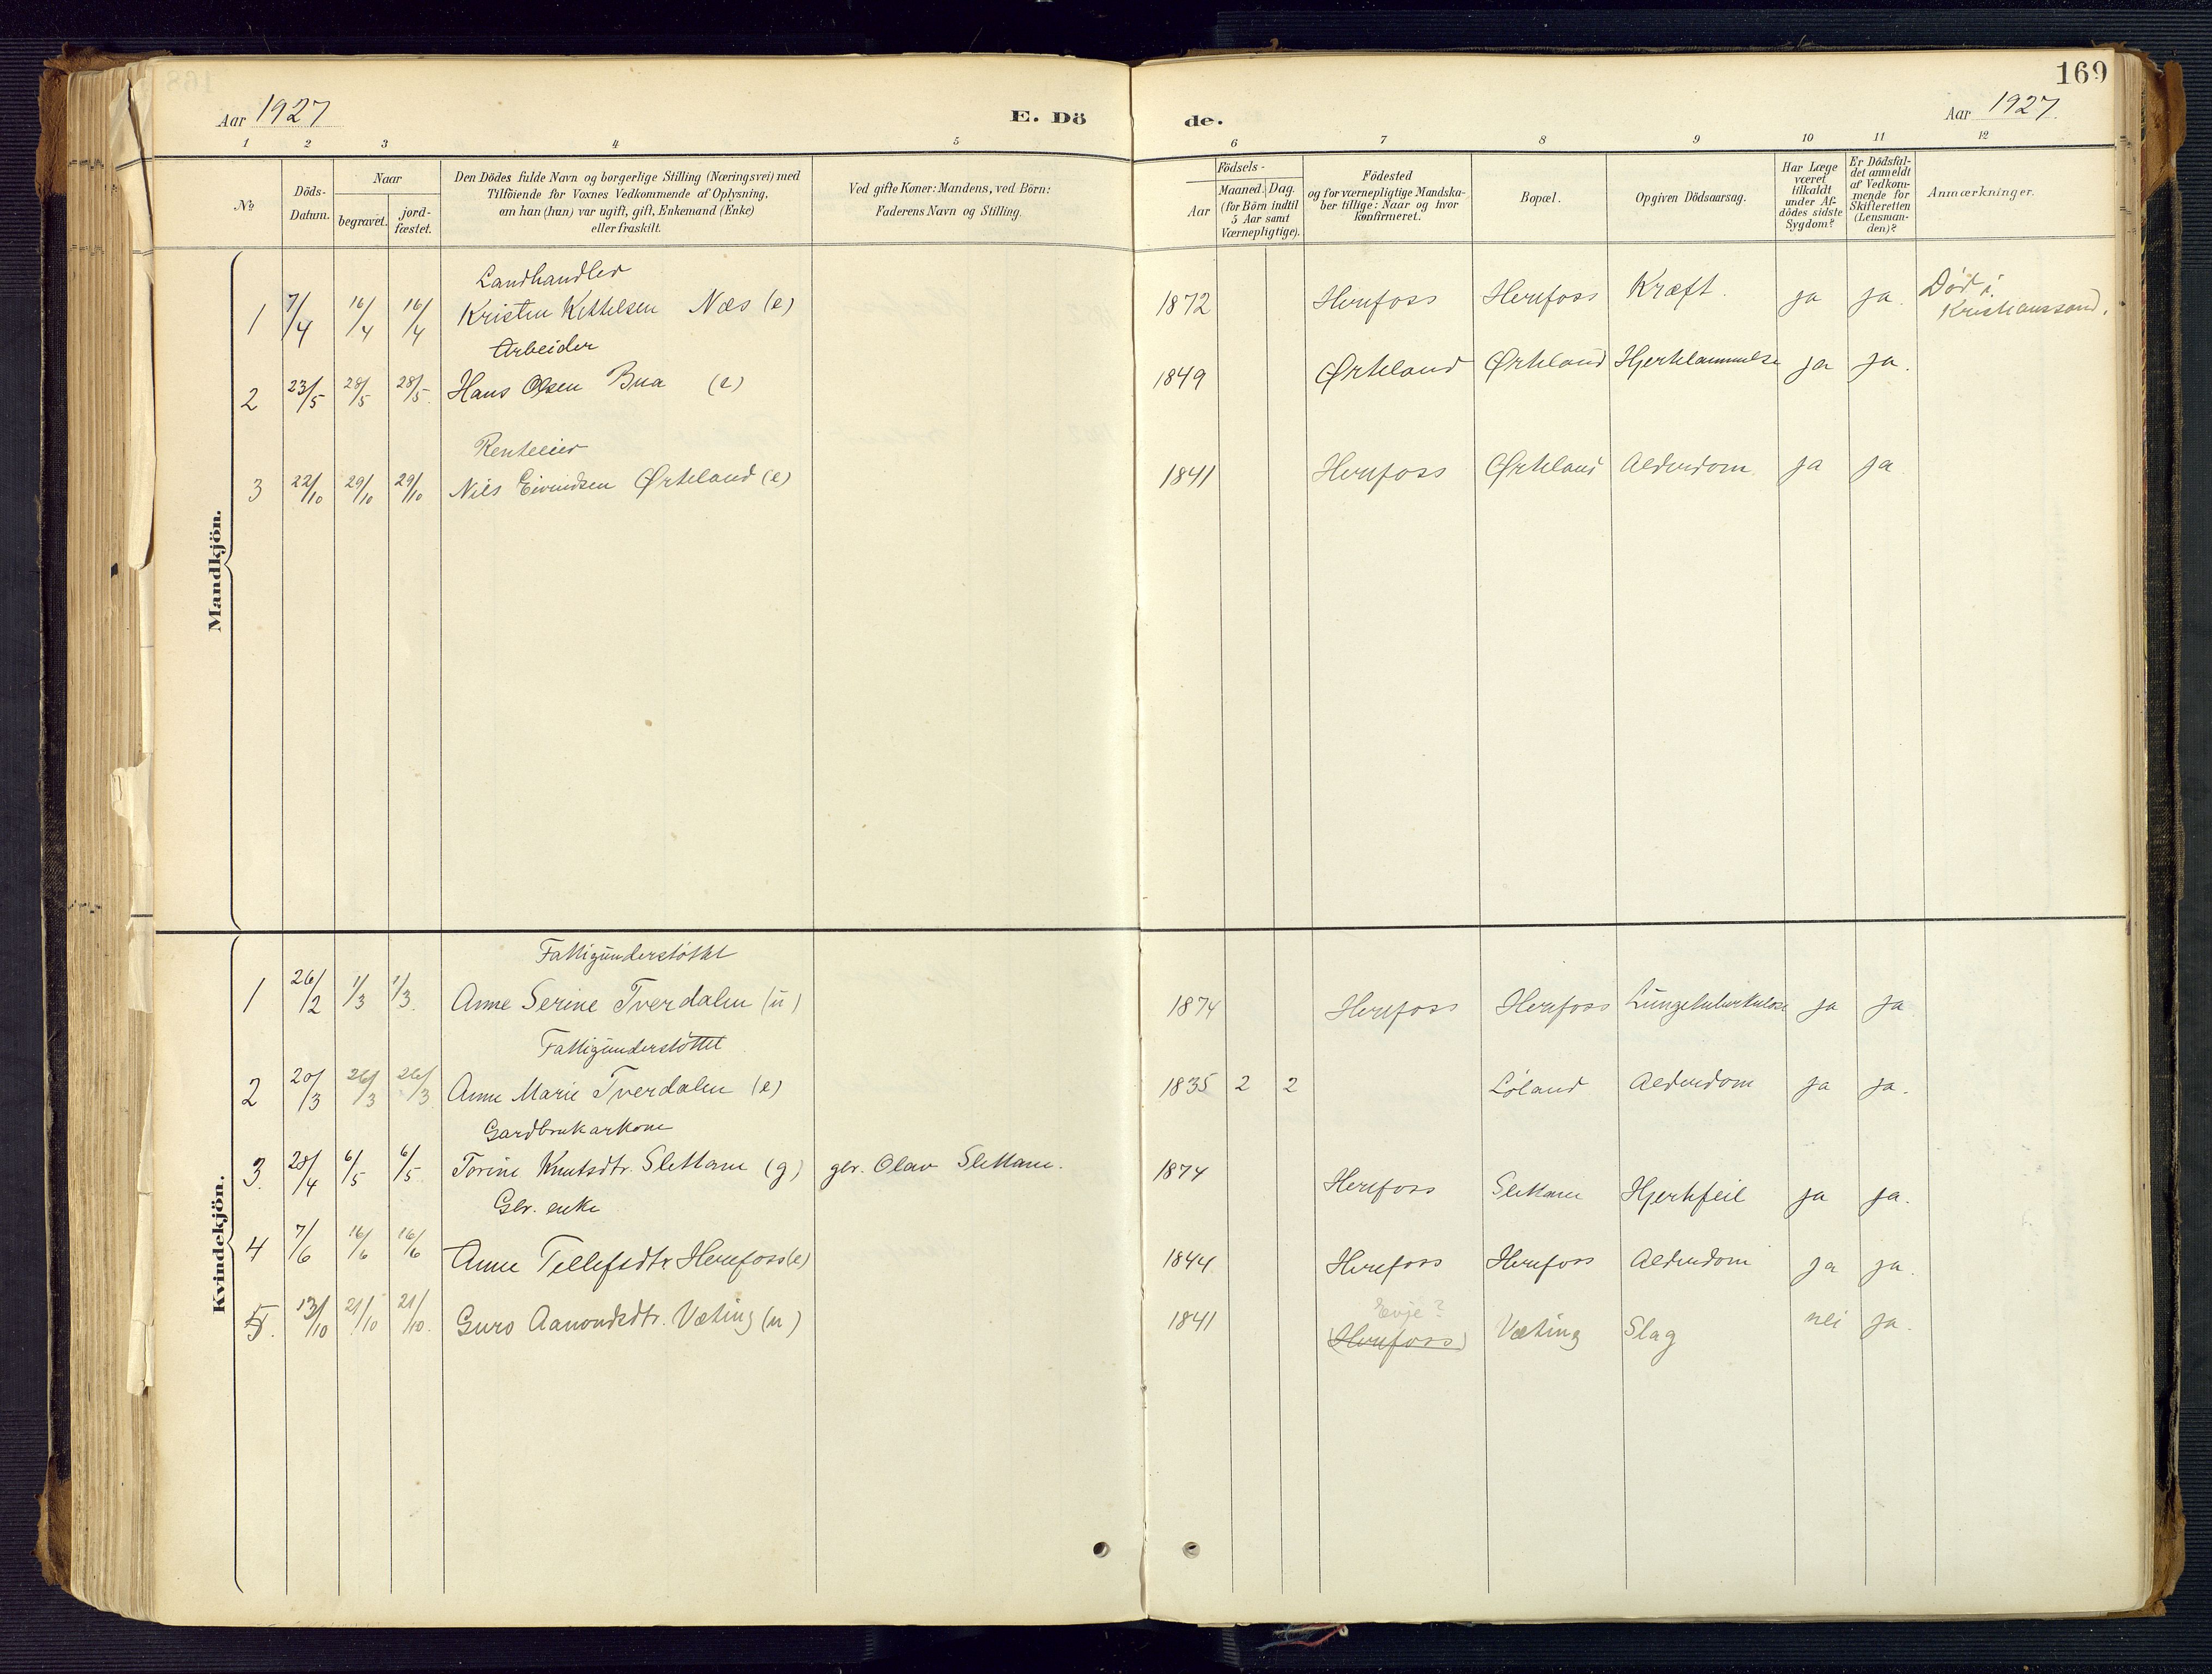 169
Aar 1927 E. Dö de. Aar 1927.
1 2 3 4 5 6 7 8 9 10 11 12
No
Döds-Datum.
Naar
begravet.
jord-fæstet.
Den Dödes fulde Navn og borgerlige Stilling (Næringsvei) med
Tilföiende for Voxnes Vedkommende af Oplysning,
om han (hun) var ugift, gift, Enkemand (Enke)
eller fraskilt.
Ved gifte Koner: Mandens, ved Börn:
Faderens Navn og Stilling.
Födsels-
Aar
Maaned. Dag.
(for Börn indtil
5 Aar samt
Værnepligtige).
Födested
og for værnepligtige Mandska-
ber tillige: Naar og hvor
konfirmeret.
Bopæl.
Opgiven Dödsaarsag.
Har Læge
været
tilkaldt
under Af-
dödes sidste
Sygdom?
Er Dödsfal-
det anmeldt
af Vedkom-
mende for
Skifteretten
(Lensman-
den)?
Anmærkninger.
Mandkjön.
Landhandler
1 7/4 16/4 16/4 Kristen Kittelsen Næs (e) 1872 Herefoss Herefoss Kræft. ja ja. Död i
Kristianssand.
Arbeider
2 23/5 28/5 28/5. Hans Olsen Bua (e) 1849 Ørteland Ørteland Hjertelammelse ja ja.
Renteeier
3 22/10 29/10 29/10 Nils Eivindsen Ørteland (e) 1841 Herefoss Ørteland Alderdom ja ja
Kvindekjön.
Fattigunderstöttet
1 26/2 1/3 1/3. Anne Serine Tverdalen (u) 1874 Herefoss Herefoss Lungetuberkulose ja ja
Fattigunderstöttet
2 20/3 26/3 26/3 Anne Marie Tverdalen (e) 1835 2 2 Löland Alderdom ja ja.
Gardbrukarkone
3. 28/4 6/5 6/5. Torine Knutsdtr. Slettane (g) gbr. Olav Slettane. 1874 Herefoss Slettane Hjertefeil ja ja.
Gbr. enke
4 7/6 16/6 16/6 Anne Tellefsdtr. Herefoss (e) 1844 Herefoss Herefoss Alderdom ja ja.
Evje?
5. 13/10 21/10 21/10. Guro Aanondsdtr. Væting (u) 1841 (Herefoss) Væting Slag nei ja.